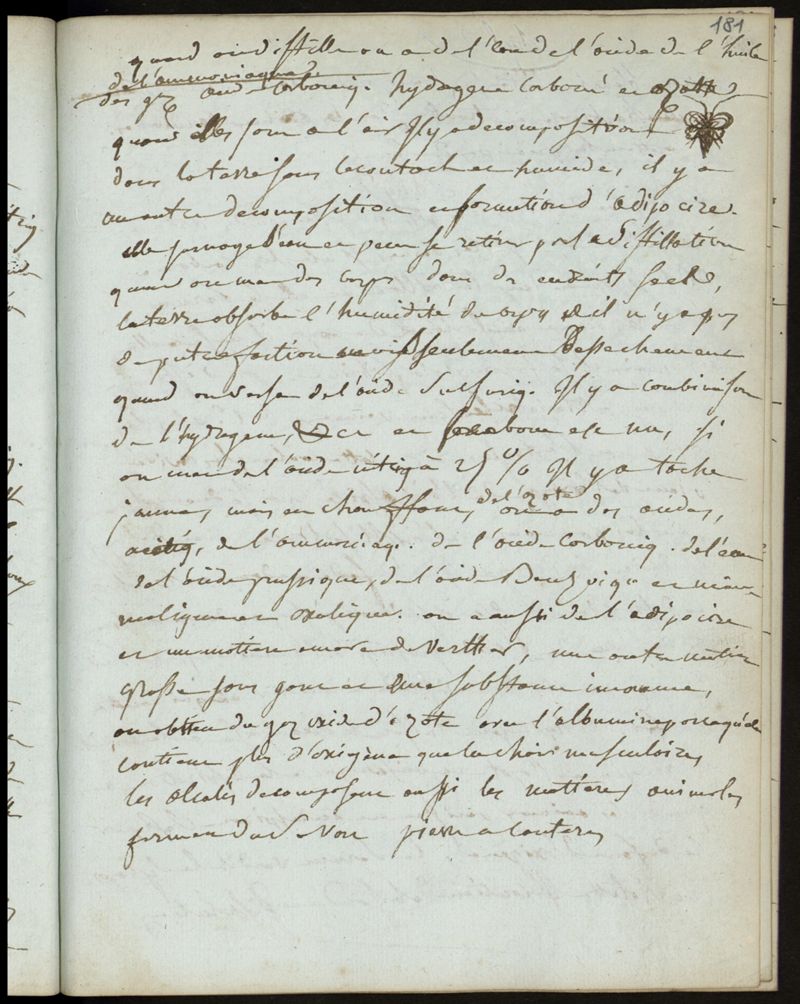 181
quand on distille on a de l'eau de l'acide de l'huile
de l'ammoniaque
des gaz acide carboniq. hydrogene carboné et azotte
quand elles sont a l'air Il y a decomposition
dans la terre sans le contact humide, il y a
un autre decomposition et formation d'adipocire.
elle surnage l'eau et peut se retirer par la distillation
quand on met des corps dans des endroits secs,
la terre absorbe l'humidité du corps et il n'y a pas
de putrefaction mais seulement dessechement
quand on verse de l'acide sulfuriq. Il y a combinaison
de l'hydrogene, et le carbone est nu, si
on met de l'acide nitriq à 25 % Il y a tache
jaune, mais en chauffant, on a des acides,
de l'azote
acétiq, de l'ammoniaq. de l'acide carboniq. de l'eau
de l'acide prussique, de l'acide benzoique et même
malique et oxalique. on a aussi de l'adipocire
et un matiere amere de Verther, une autre matiere
grasse sans gout et une substance inconnue,
on obtien du gaz oxide d'azote avec l'albumine parcequ'elle
contient plus d'oxigène que la chair musculaire
les alcalis decomposent aussi les matieres animales
forment du savon pierre a cautere